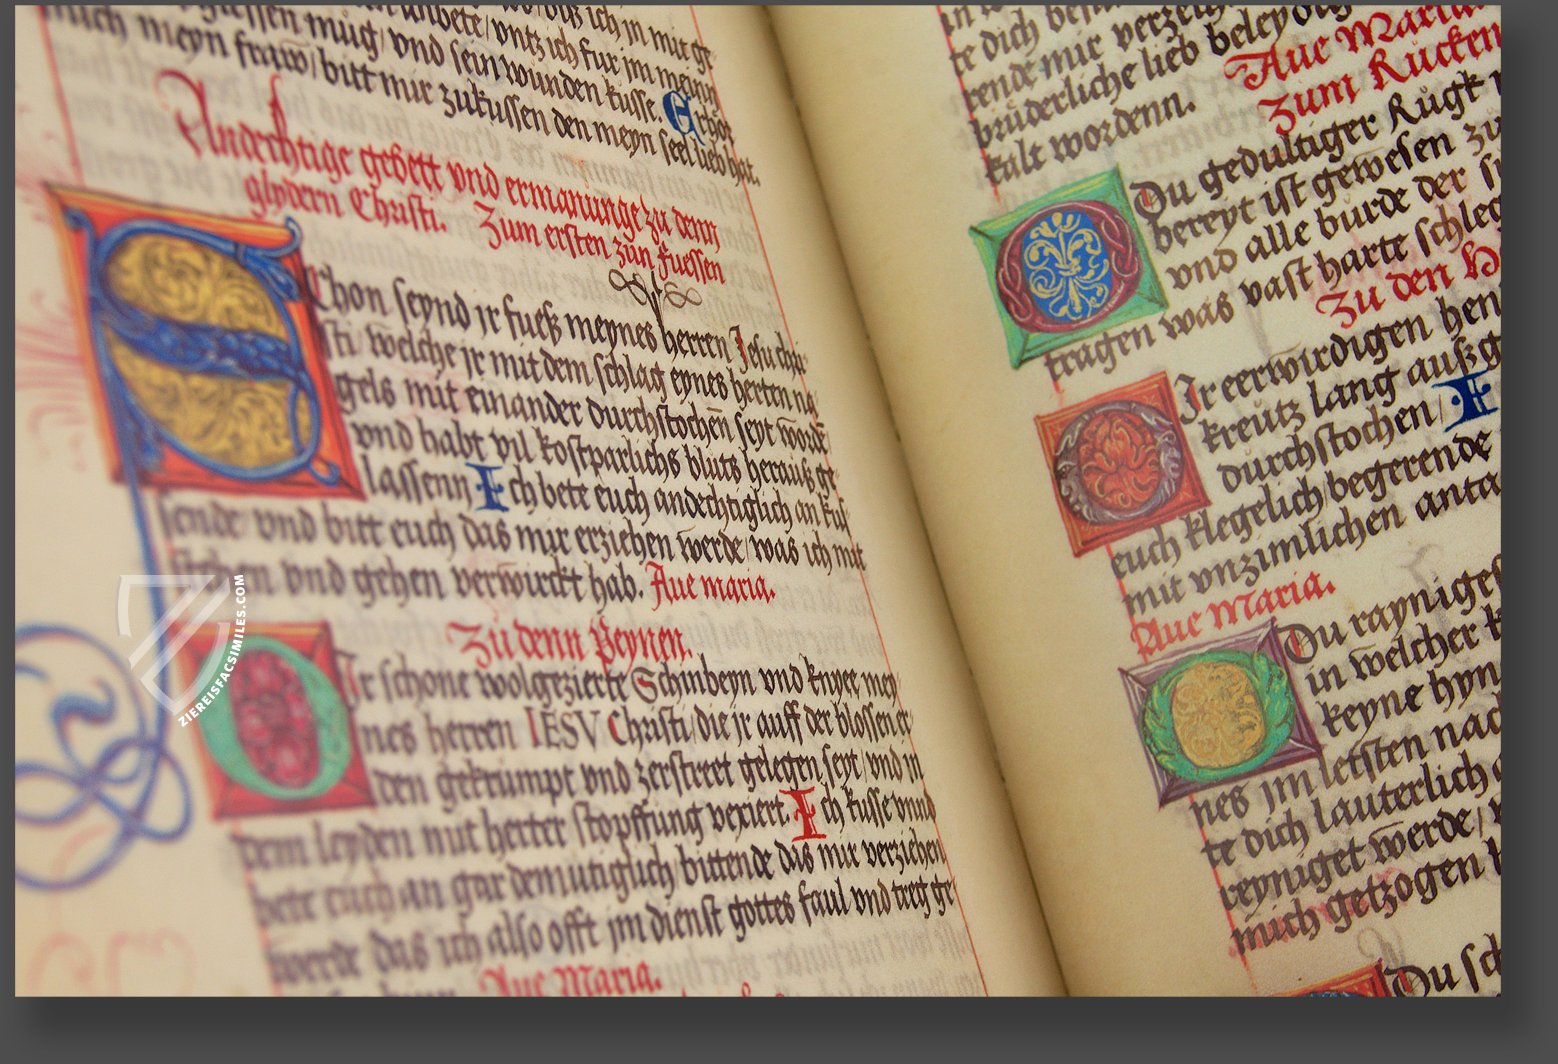 müg/ vnd sein wunden küsse. Erhör
mich meyn fraw/ bitt mir zuküssen den meyn seel lieb hat.
Andechtige gebett vnd ermanunge zu denn
glydern Christi. Zum ersten zun fuessen
Schon seynd jr fuesß meynes herren Jesu chri
sti/ welche jr mit dem schlag eynes herten na
gels mit einander durchstochen seyt worde
vnd habt vil kostparlichs bluts herauß ge
lassenn Ich bete euch andechtiglich an küs
sende/ vnd bitt euch das mir erziehen werde/ was ich mit
stehen vnd gehen verwirckt hab. Aue maria.
Zu denn Peynen.
Ir schone wolgezierte Schinbeyn vnd knyee mey
nes herren IESV Christi/ die jr auff der blossen er
den gekrümpt vnd zerstreet gelegen seyt/ vnd in
dem leyden mit herter stopffung vexiert. Ich küsse vnnd
bete euch an gar demütiglich bittende das mir verziehen
werde das ich also offt jm dienst gottes faul vnd treg ge
Aue Maria.
te dich
rende mir verzeich
brüderliche lieb beleydig
kalt wordenn. Aue Maria
Zum Rucken
Du gedultiger Rügk
bereyt ist gewesen zu
vnd alle bürde der
tragen was vast harte schleg
Zu den H
Ir eerwirdigen hen
kreutz lang außg
durchstochen/ I
euch klegelich/ begerende
mit vnzimlichen anta
Aue Maria.
Du rayniges
in welcher k
keyne hyn
nes jm letsten nac
te dich lauterlich
reyniget werde/
mich getzogen
Du sch
ZIEREISFACSIMILES.COM